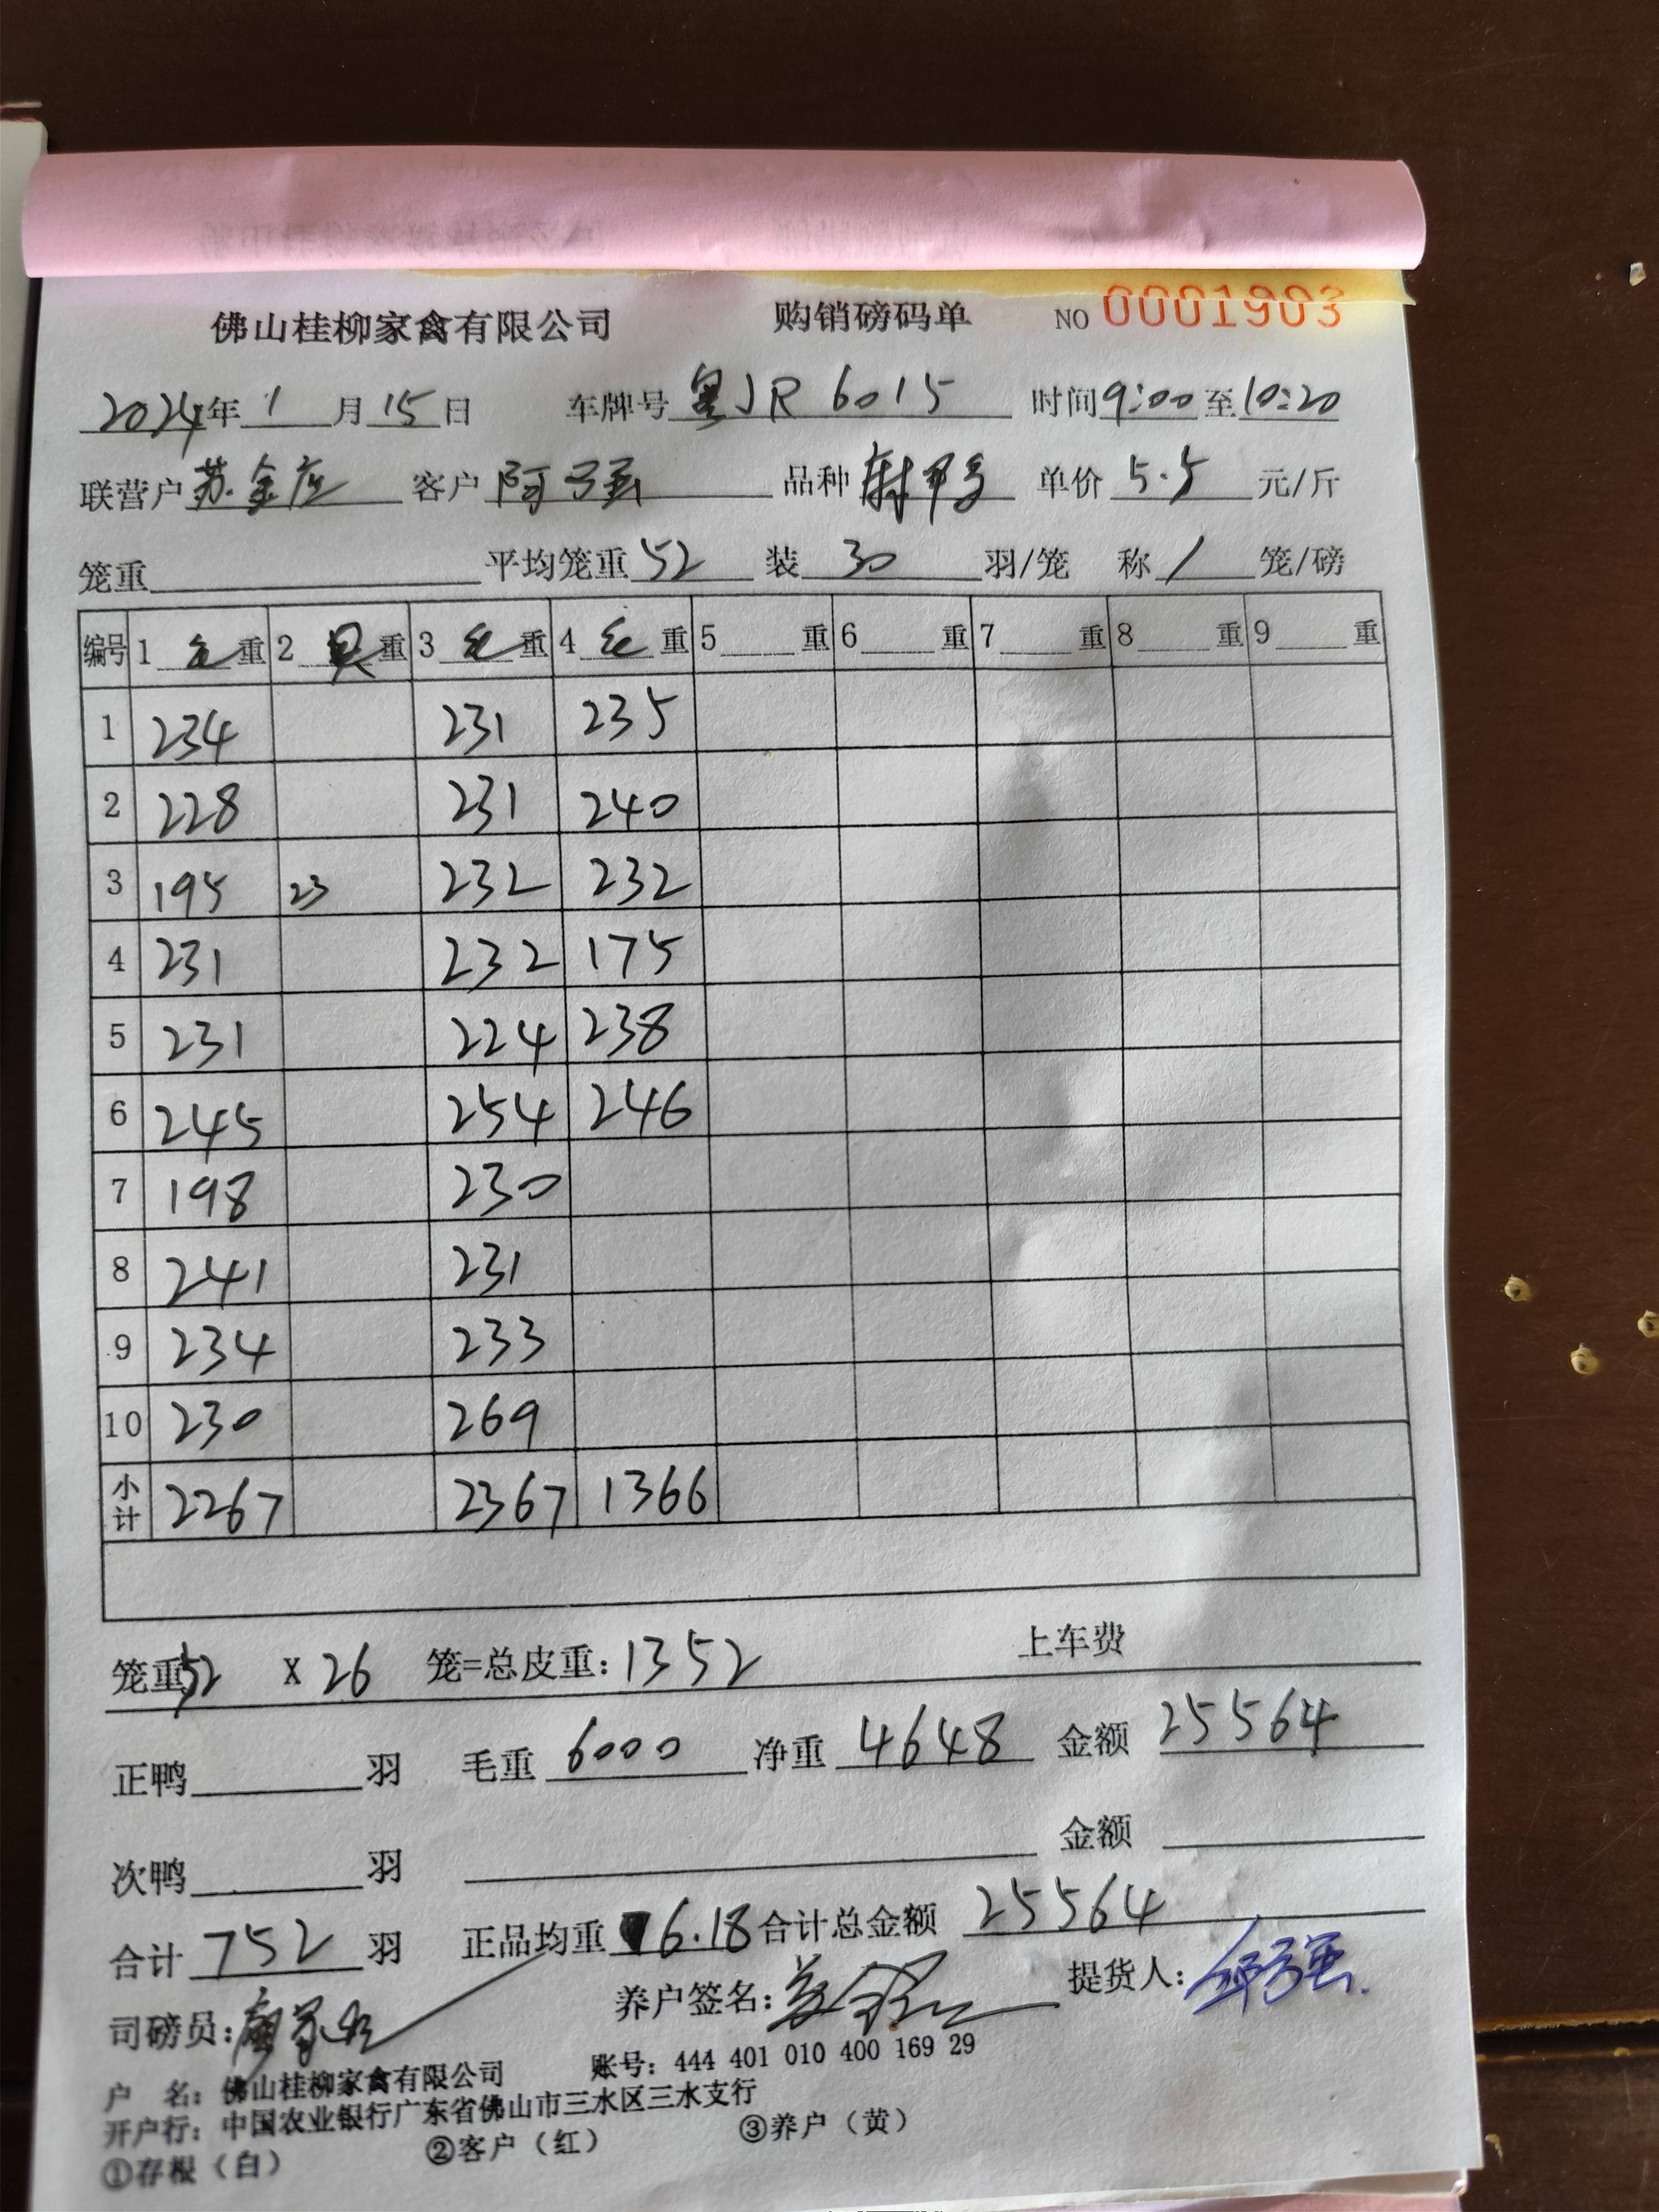 佛山桂柳家禽有限公司 购销磅码单 NO 0001903
2024年 1 月 15 日 车牌号 粤JR 6015 时间 9:00 至 10:20
联营户 苏金应 客户 阿强 品种 单价 5.5 元/斤
笼重 平均笼重 52 装 30 羽/笼 称 1 笼/磅
编号 1 毛重 2 只重 3 毛重 4 毛重 5 重 6 重 7 重 8 重 9 重
1 234 231 235
2 228 231 240
3 195 23 232 232
4 231 232 175
5 231 224 238
6 245 254 246
7 198 230
8 241 231
9 234 233
10 230 269
小计 2267 2367 1366
笼重 52 X 26 笼=总皮重: 1352 上车费
正鸭 羽 毛重 6000 净重 4648 金额 25564
次鸭 羽 金额
合计 752 羽 正品均重 6.18 合计总金额 25564
司磅员: 养户签名: 提货人:
户 名: 佛山桂柳家禽有限公司 账号: 444 401 010 400 169 29
开户行: 中国农业银行广东省佛山市三水区三水支行
①存根（白） ②客户（红） ③养户（黄）